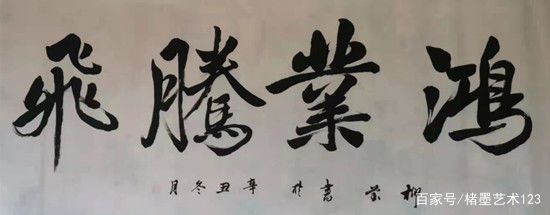 鴻業騰飛
柳書於辛丑冬月
百家号/楮墨艺术123